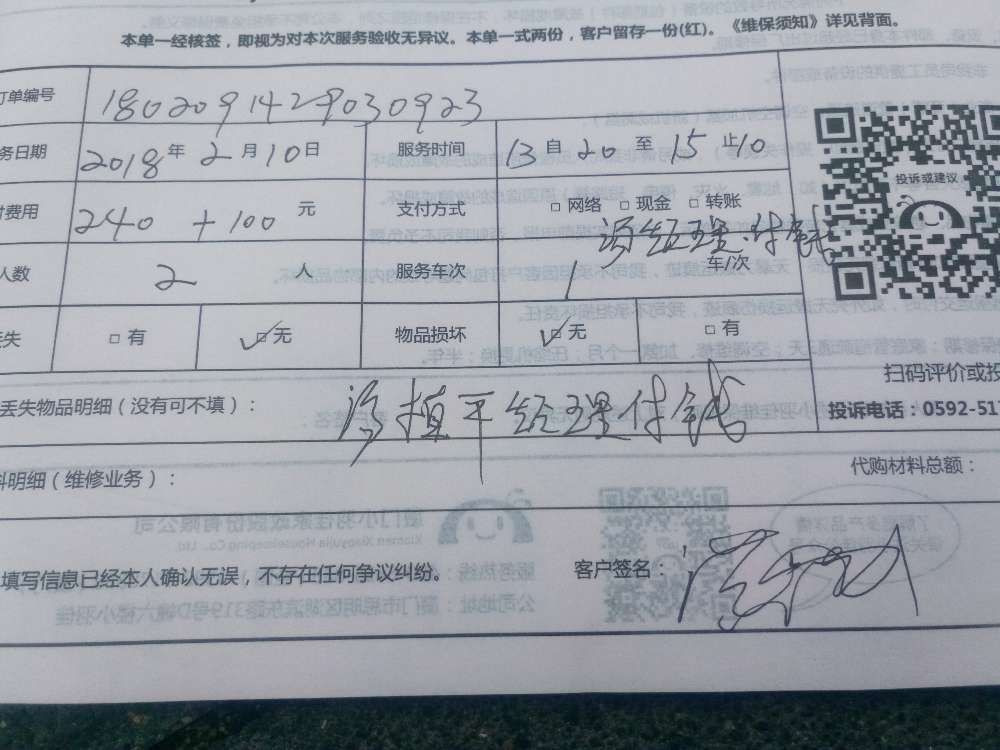 本单一经核签，即视为对本次服务验收无异议。本单一式两份，客户留存一份(红)。《维保须知》详见背面。
订单编号 1802091429030923
务日期 2018年2月10日 服务时间 13自20至15止10
费用 240+100元 支付方式 □网络 □现金 □转账
经理付钱
人数 2人 服务车次 1车/次
丢失 □有 ☑无 物品损坏 ☑无 □有
投诉或建议
扫码评价或投
丢失物品明细（没有可不填）： 植平经理付钱
投诉电话：0592-517
料明细（维修业务）： 代购材料总额：
填写信息已经本人确认无误，不存在任何争议纠纷。 客户签名：